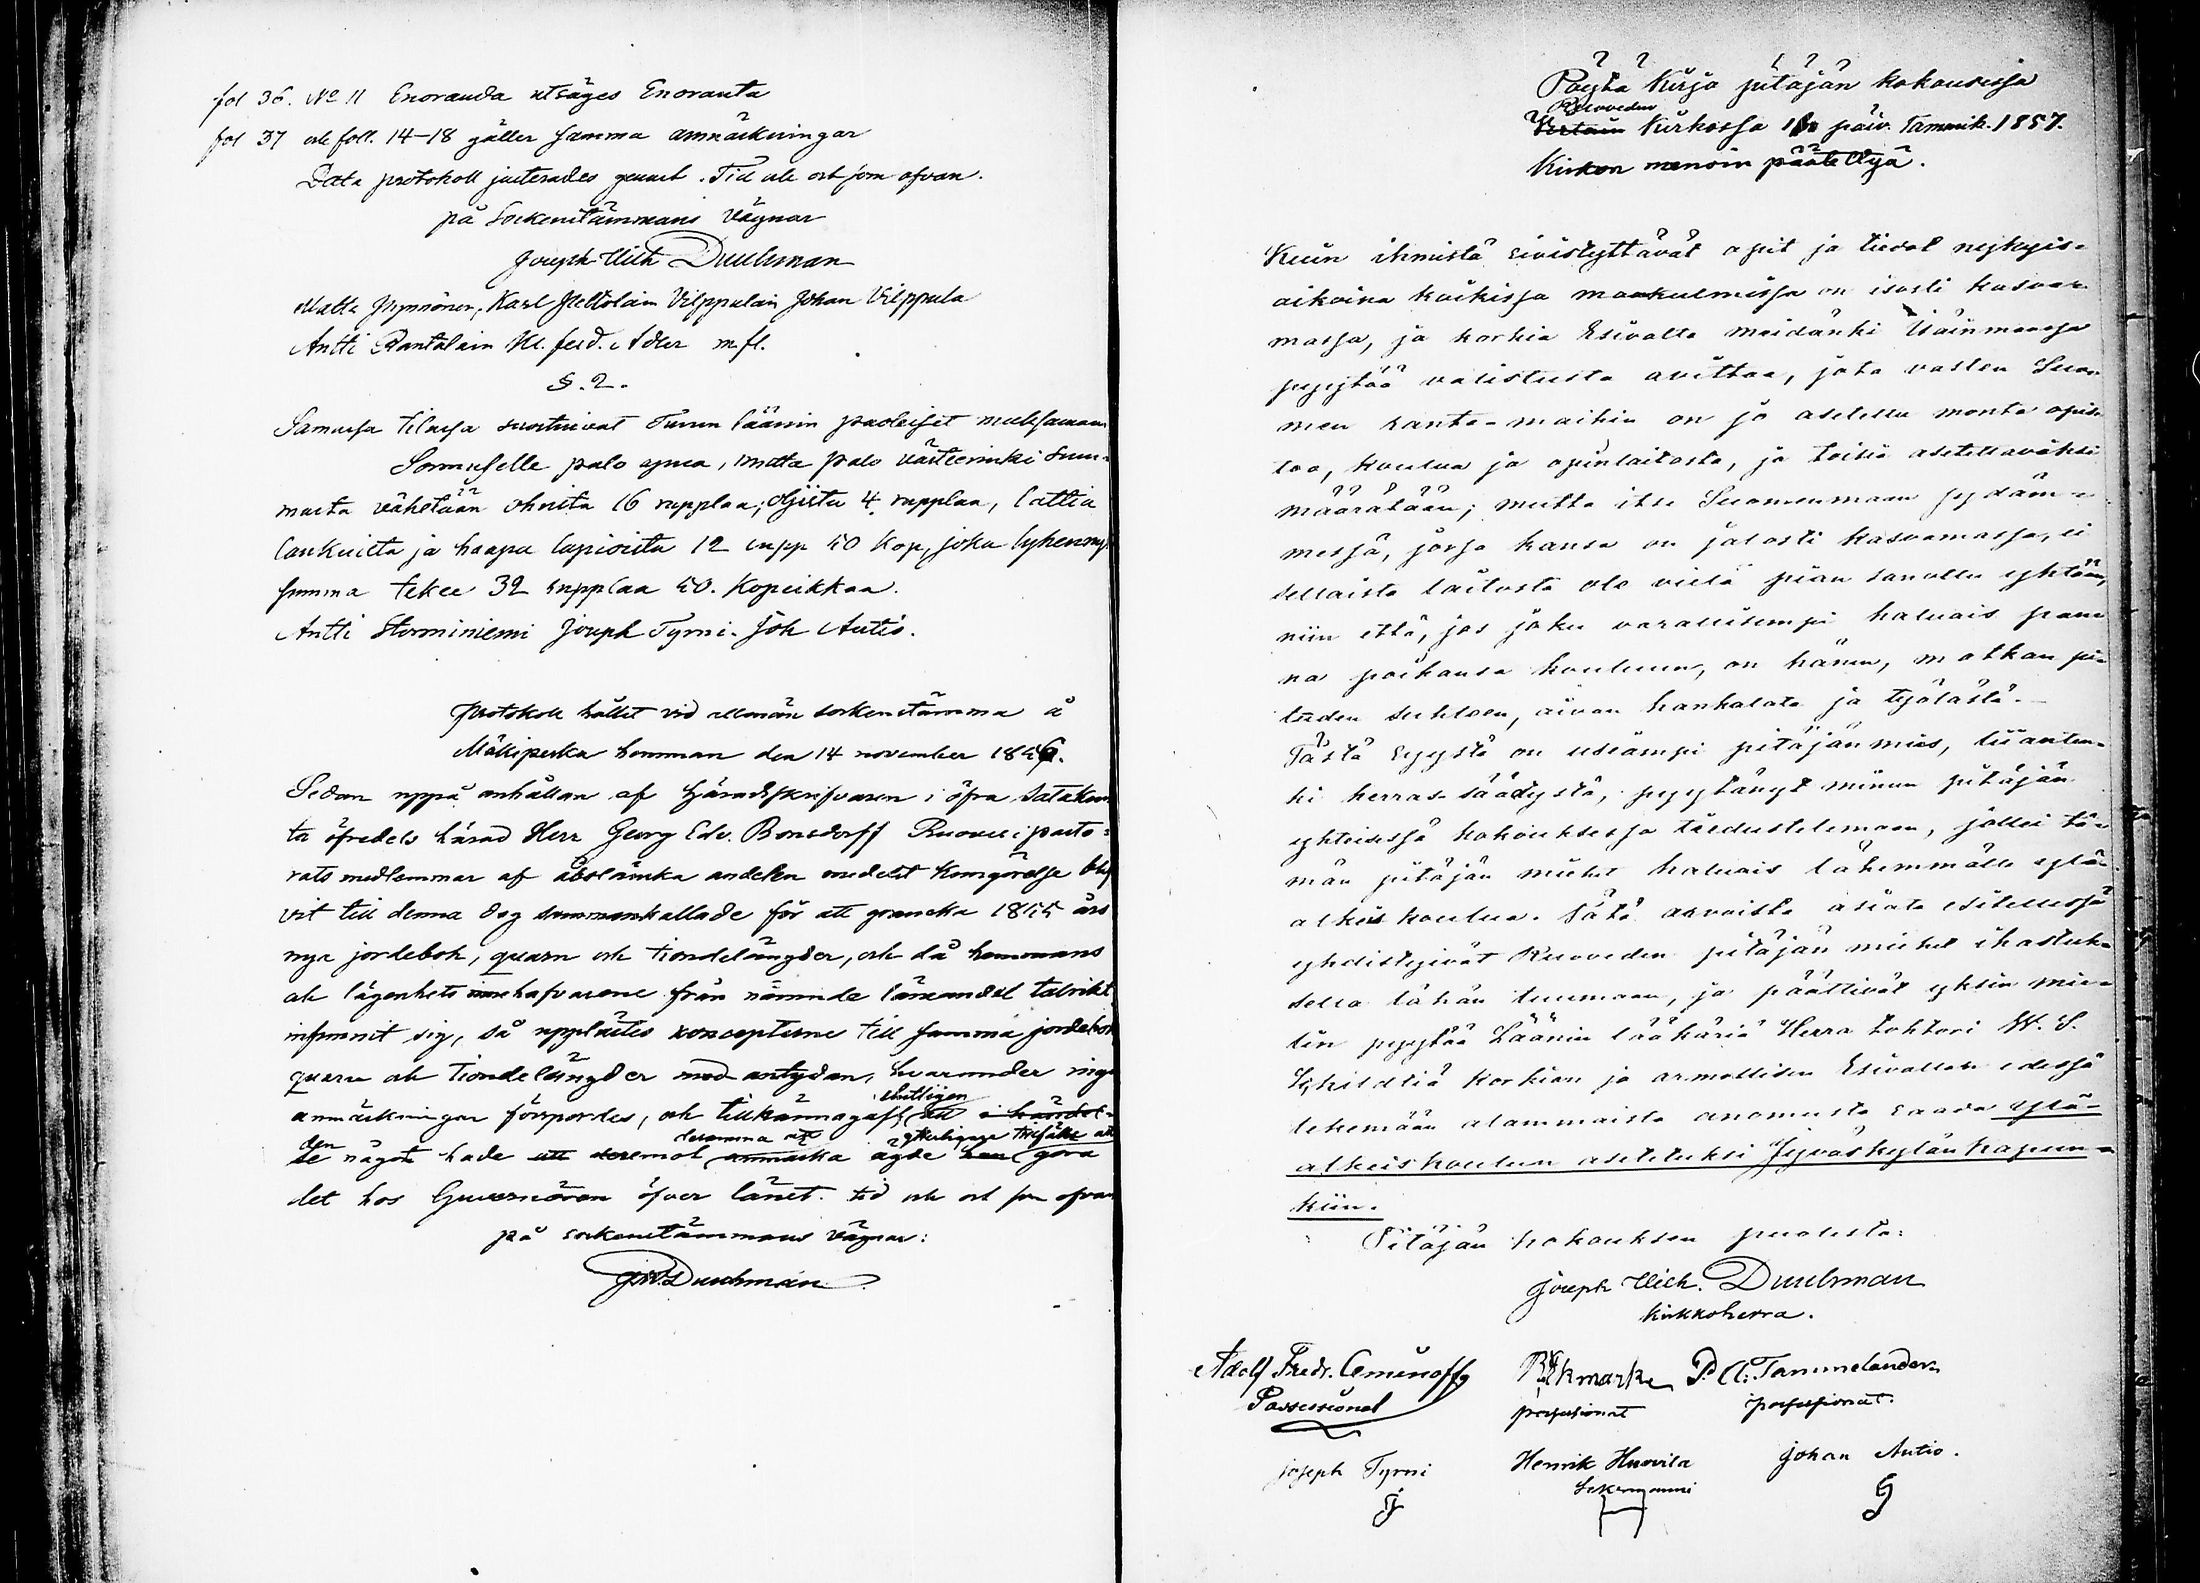 fol 36. No 11 Enoranda utsäges Enoranta
fol 37 och foll. 14-18 gäller samma anmärkningar
Detta protokoll justerades genast. Tid och ort som ofvan.
på Sockenstämmans vägnar
Joseph Wilh Durchman
Matts Karl Peltolain Vilppulain Johan Vilppula
Antti Rantalain Kl. ferd. Adler m.fl.
§. 2.
Samassa tilassa suostuivat Turun läänin puoleiset maksamaan
palo apua, mutta palo västeerinki Sum-
masta vähetään ohrista 16 rupplaa; Oljista 4 rupplaa, lattia
lankuilta ja haapa lapioista 12 rupp 50 Kop, joka lyhennys
summa tekee 32 rupplaa 50. Kopeikkaa.
Antti Storminiemi Joseph Tyrni. Joh Autio.
Protokoll hållet vid allmän sockenstämma å
Mäkipeska hemman den 14 november 1856.
Sedan uppå anhållan af Häradskrifvaren i öfra Satakun
ta öfredels härad Herr Georg Edv. Bonsdorff Ruovesi pasto-
rats medlemmar af åboländska andelen medelst Kungörelse blif
vit till denna dag sammankallade för att granska 1855 års
nya jordebok, quarn och tiondelängder, och då hemmans
och lägenhets innehafvarene från nämnde länsandel talrikt
infunnit sig, så upplästes koncepterne till samma jordebok
quarn och Tiondelängder med antydan, hvarunder inga
anmärkningar förspordes, och tillkännagafs slutligen att i händel-
se den något hade att deremot desamma att anmärka ägde ytterligare tillfälle att han göra
det hos Guvernören öfver länet. tid och ort som ofvan
på sockenstämmans vägnar:
JW. Durchman
Pöytä Kirja pitäjän kokouksessa
Ruoveden Kirkossa 1 päiv. Tammik. 1857.
Kirkon menoin päätettyä.
Kuin ihmistä sivistyttävät opit ja tiedot nykyis-
aikoina kaikissa maakulmissa on isosti kasvaa-
massa, ja korkia Esivalta meidänki Isäinmaassa
pyytää valistusta avittaa, jota vasten Suo-
men ranta-maihin on jo asetettu monta opis-
toa, koulua ja opinlaitosta, ja toisia asetettaväksi
määrätään; mutta itse Suomenmaan sydäm-
messä, jossa kansa on jalosti kasvamassa, ei
sellaista laitosta ole vielä pian sanottu yhtään,
niin että, jos joku varallisempi haluais pan-
na poikansa kouluun, on hänen, matkan pi-
tuuden suhteen, aivan hankalata ja työlästä.
Tästä syystä on useampi pitäjänmies, liiaten-
ki herras-säädystä, pyytänyt minun pitäjän
yhteisessä kokouksessa tiedustelemaan, jollei tä-
män pitäjän miehet haluais lähemmälle ylä-
alkeis koulua. Tätä arvoista asiata esitellessä
yhdistyivät Ruoveden pitäjän miehet ihastuk-
sella tähän tuumaan, ja päättivät yksin mie-
lin pyytää Läänin lääkäriä Herra tohtori W. S.
Schildtiä korkian ja armollisen Esivallan edessä
tekemään alammaista anomusta saada ylä-
alkeiskoulun asetetuksi Jyväskylän kapun-
kiin.
Pitäjän kokouksen puolesta:
Joseph Wilh. Durchman
Kirkkoherra.
Adolf Fredr. Aminoff P. A. Tammelander
Possessionat possessionat possessionat.
Joseph Tyrni Henrik Huovila Johan Autio.